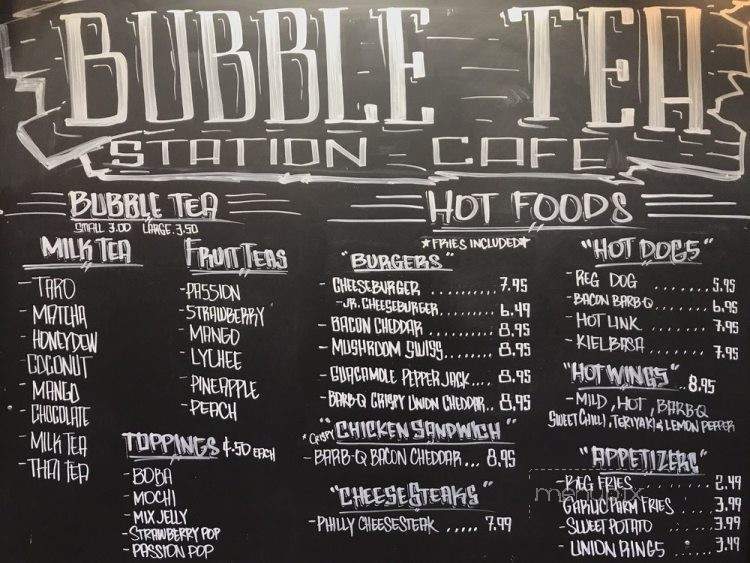 BUBBLE TEA
STATION CAFE
BUBBLE TEA
SMALL 3.00 LARGE 3.50
MILK TEA
- TARO
- MATCHA
- HONEYDEW
COCONUT
- MANGO
- CHOCOLATE
- MILK TEA
- THAI TEA
FRUIT TEAS
- PASSION
- STRAWBERRY
- MANGO
- LYCHEE
- PINEAPPLE
- PEACH
TOPPINGS $.50 EACH
- BOBA
- MOCHI
- MIX JELLY
- STRAWBERRY POP
- PASSION POP
HOT FOODS
★FRIES INCLUDED★
"BURGERS"
- CHEESEBURGER .......... 7.95
- JR. CHEESEBURGER ....... 6.49
- BACON CHEDDAR ......... 8.95
- MUSHROOM SWISS ....... 8.95
- GUACAMOLE PEPPER JACK .... 8.95
- BARB-Q CRISPY UNION CHEDDAR.. 8.95
*CRISPY "CHICKEN SANDWICH"
- BARB-Q BACON CHEDDAR... 8.95
"CHEESESTEAKS"
- PHILLY CHEESESTEAK ..... 7.99
"HOT DOGS"
- REG DOG ......... 5.95
- BACON BARB-Q ...... 6.95
- HOT LINK ........ 7.95
- KIELBASA ....... 7.95
"HOT WINGS" 8.95
- MILD, HOT, BARB-Q
SWEET CHILI, TERIYAKI & LEMON PEPPER
"APPETIZERS"
- REG FRIES ........ 2.49
- GARLIC PARM FRIES .... 3.99
- SWEET POTATO .... 3.99
- UNION RINGS ..... 3.49
menupix